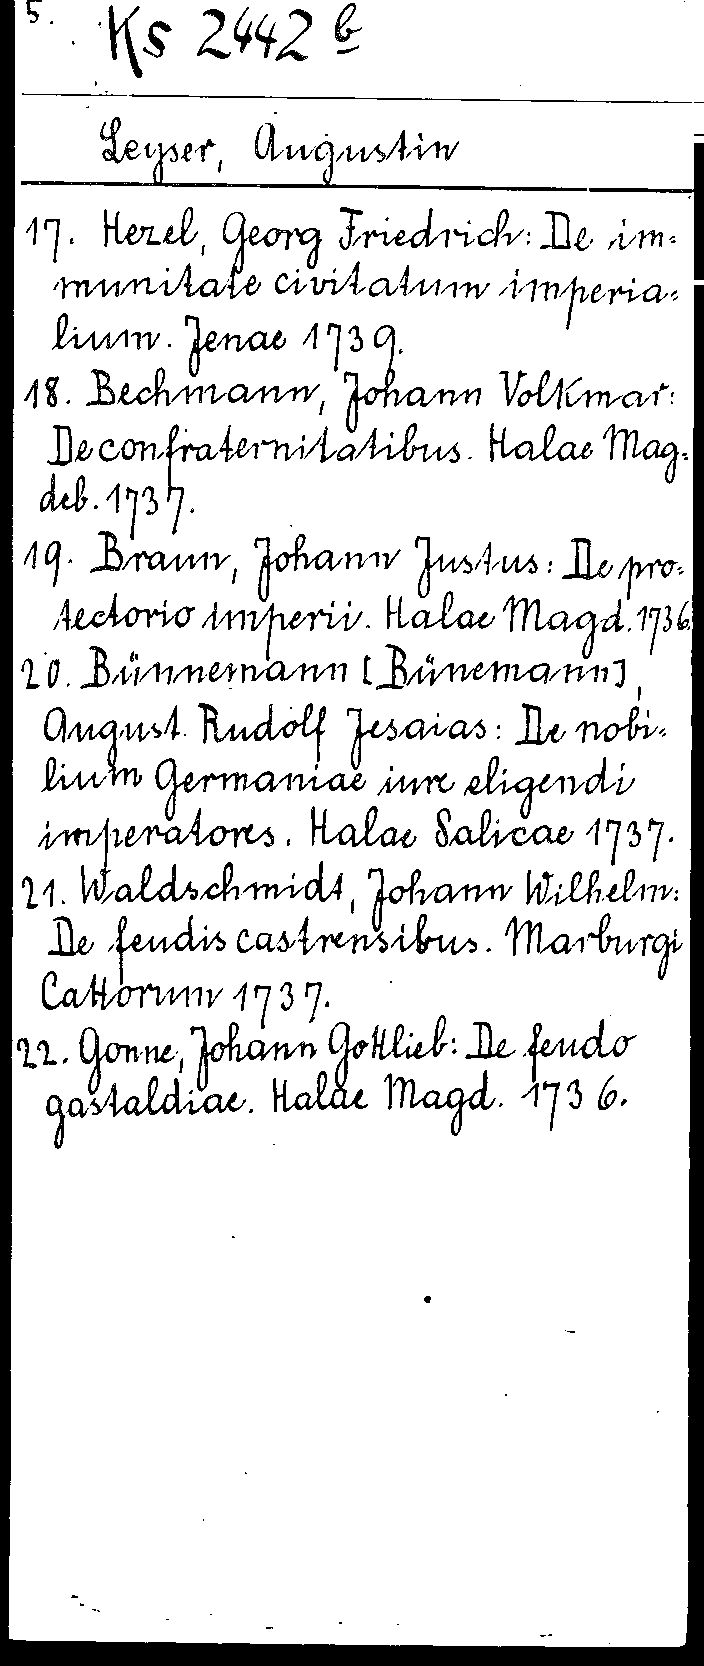 5.
Ks 2442 b
Leyser, Augustin
17. Hezel, Georg Friedrich: De im=
munitate civitatum imperia=
lium. Jenae 1739.
18. Bechmann, Johann Volkmar:
De confraternitatibus. Halae Mag=
deb. 1737.
19. Braun, Johann Justus: De pro=
tectorio imperii. Halae Magd. 1736
20. Bünnemann [Bünemann],
August Rudolf Jesaias: De nobi=
lium Germaniae iure eligendi
imperatores. Halae Salicae 1737.
21. Waldschmidt, Johann Wilhelm:
De feudis castrensibus. Marburgi
Cattorum 1737.
22. Gonne, Johann Gottlieb: De feudo
gastaldiae. Halae Magd. 1736.